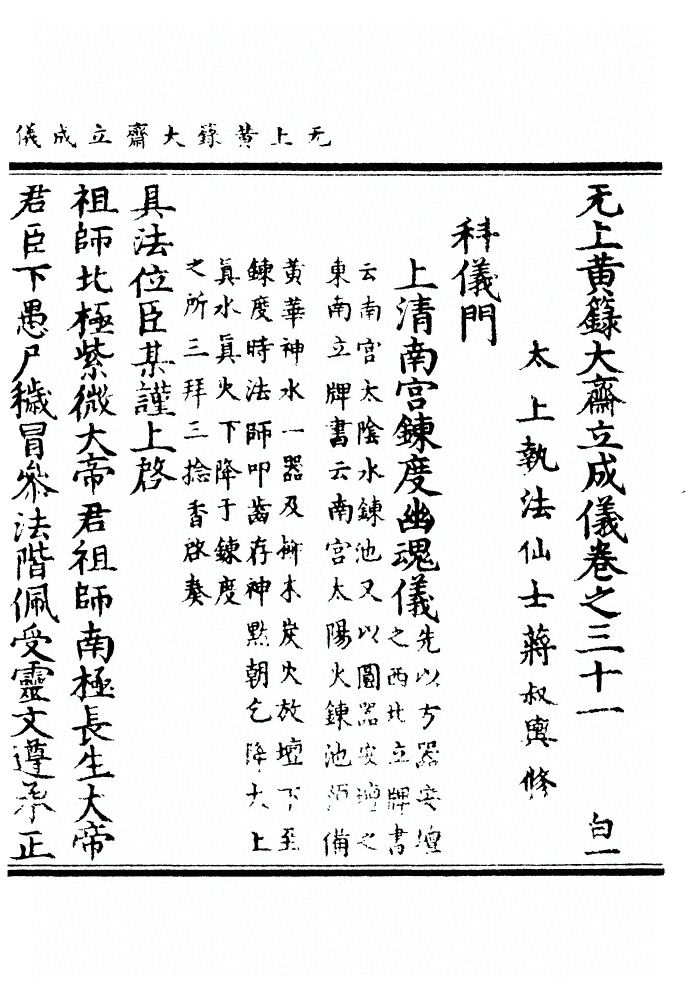 无上黃籙大齋立成儀
无上黃籙大齋立成儀卷之三十一 白一
太上執法仙士蔣叔輿修
科儀門
上清南宮鍊度幽魂儀
先以方器安壇
之西北立牌書
云南宮太陰水鍊池又以圓器安壇之
東南立牌書云南宮太陽火鍊池備
黃華神水一器及木炭火放壇下至
鍊度時法師叩齒存神默朝乞降太上
眞水眞火下降于鍊度
之所三拜三捻香啓奏
具法位臣某謹上啓
祖師北極紫微大帝君祖師南極長生大帝
君臣下愚尸穢冒叅法階佩受靈文遵承正